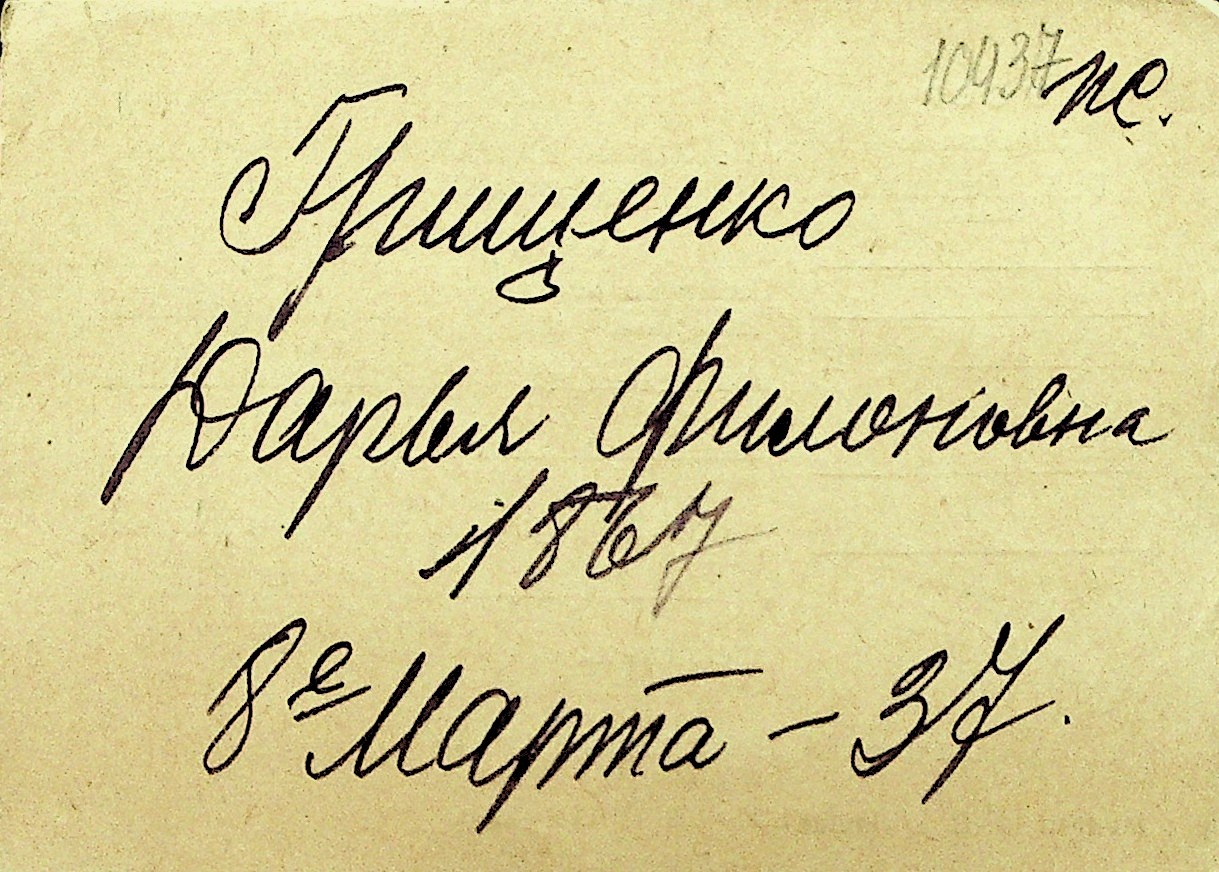 10437 пс.
Грищенко
Дарья Филоновна
1867
8е Марта - 37.